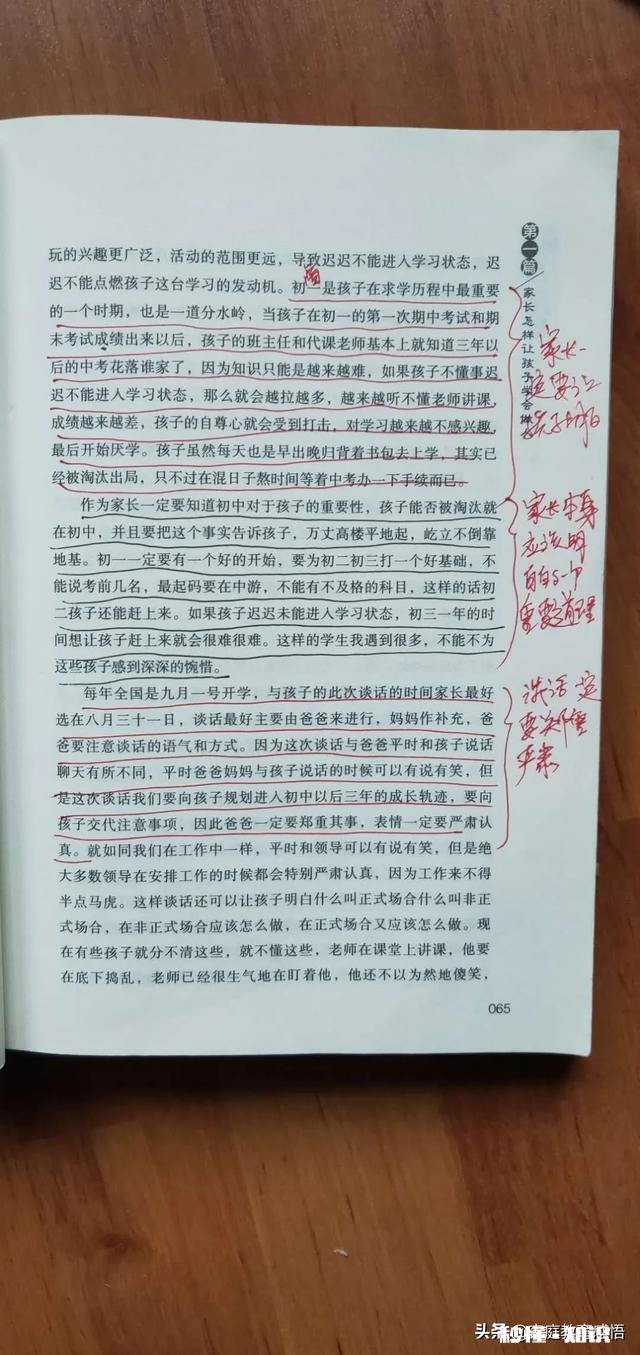 玩的兴趣更广泛，活动的范围更远，导致迟迟不能进入学习状态，迟
迟不能点燃孩子这台学习的发动机。初一是孩子在求学历程中最重要
的一个时期，也是一道分水岭，当孩子在初一的第一次期中考试和期
末考试成绩出来以后，孩子的班主任和代课老师基本上就知道三年以
后的中考花落谁家了，因为知识只能是越来越难，如果孩子不懂事迟
迟不能进入学习状态，那么就会越拉越多，越来越听不懂老师讲课，
成绩越来越差，孩子的自尊心就会受到打击，对学习越来越不感兴趣，
最后开始厌学。孩子虽然每天也是早出晚归背着书包去上学，其实已
经被淘汰出局，只不过在混日子熬时间等着中考办一下手续而已。
作为家长一定要知道初中对于孩子的重要性，孩子能否被淘汰就
在初中，并且要把这个事实告诉孩子，万丈高楼平地起，屹立不倒靠
地基。初一一定要有一个好的开始，要为初二初三打一个好基础，不
能说考前几名，最起码要在中游，不能有不及格的科目，这样的话初
二孩子还能赶上来。如果孩子迟迟未能进入学习状态，初三一年的时
间想让孩子赶上来就会很难很难。这样的学生我遇到很多，不能不为
这些孩子感到深深的惋惜。
每年全国是九月一号开学，与孩子的此次谈话的时间家长最好
选在八月三十一日，谈话最好主要由爸爸来进行，妈妈作补充，爸
爸要注意谈话的语气和方式。因为这次谈话与爸爸平时和孩子说话
聊天有所不同，平时爸爸妈妈与孩子说话的时候可以有说有笑，但
是这次谈话我们要向孩子规划进入初中以后三年的成长轨迹，要向
孩子交代注意事项，因此爸爸一定要郑重其事，表情一定要严肃认
真。就如同我们在工作中一样，平时和领导可以有说有笑，但是绝
大多数领导在安排工作的时候都会特别严肃认真，因为工作来不得
半点马虎。这样谈话还可以让孩子明白什么叫正式场合什么叫非正
式场合，在非正式场合应该怎么做，在正式场合又应该怎么做。现
在有些孩子就分不清这些，就不懂这些，老师在课堂上讲课，他要
在底下捣乱，老师已经很生气地在盯着他，他还不以为然地傻笑，
065
第一篇
家长怎样让孩子学会做
家长一
定要让
孩子明白
家长本身
应该明
白的一个
重要道理
谈话一定
要
严肃
头条